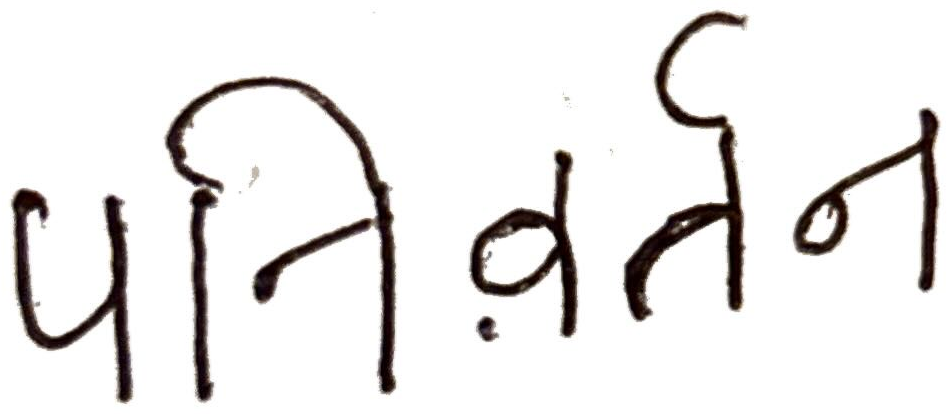 पनिव़र्तन